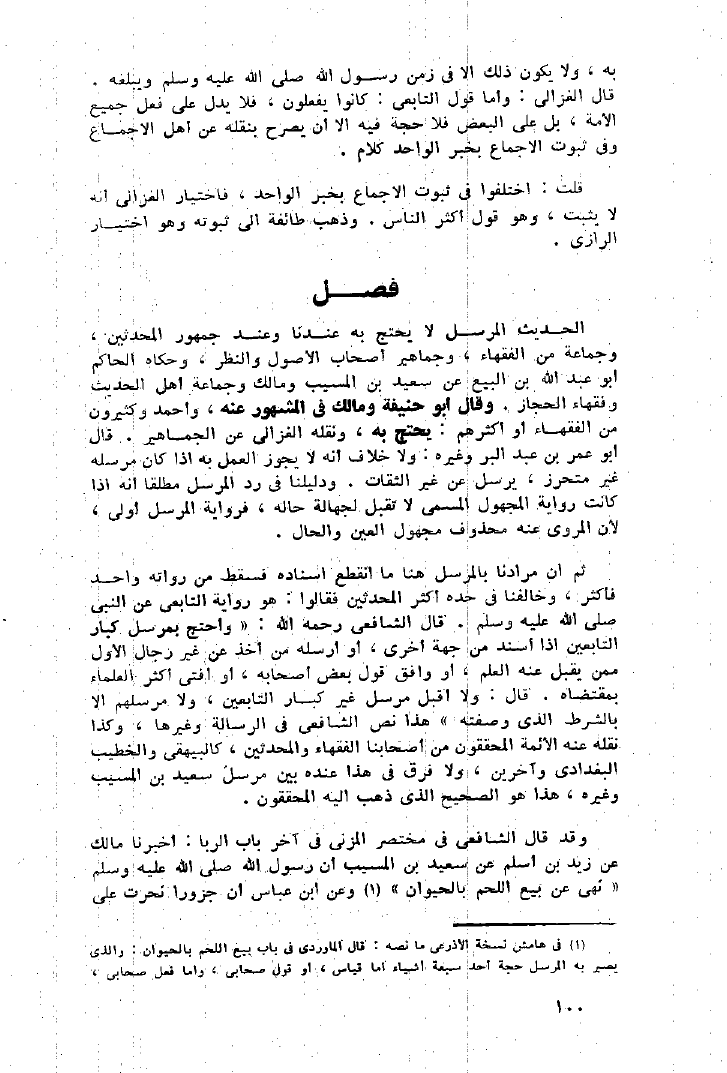 به ، ولا يكون ذلك الا فى زمن رسول الله صلى الله عليه وسلم ويبلغه .
قال الغزالى : وأما قول التابعى : كانوا يفعلون ، فلا يدل على فعل جميع
الأمة ، بل على البعض فلا حجة فيه الا أن يصرح بنقله عن أهل الاجماع
وفى ثبوت الاجماع بخبر الواحد كلام .
قلت : اختلفوا فى ثبوت الاجماع بخبر الواحد ، فاختيار الغزالى أنه
لا يثبت ، وهو قول أكثر الناس . وذهب طائفة الى ثبوته وهو اختيار
الرازى .
فصل
الحديث المرسل لا يحتج به عندنا وعند جمهور المحدثين ،
وجماعة من الفقهاء ، وجماهير أصحاب الأصول والنظر ، وحكاه الحاكم
أبو عبد الله بن البيع عن سعيد بن المسيب ومالك وجماعة أهل الحديث
وفقهاء الحجاز . وقال أبو حنيفة ومالك فى المشهور عنه ، وأحمد وكثيرون
من الفقهاء أو أكثرهم : يحتج به ، ونقله الغزالى عن الجماهير . قال
أبو عمر بن عبد البر وغيره : ولا خلاف أنه لا يجوز العمل به اذا كان مرسله
غير متحرز ، يرسل عن غير الثقات . ودليلنا فى رد المرسل مطلقا أنه اذا
كانت رواية المجهول المسمى لا تقبل لجهالة حاله ، فرواية المرسل أولى ،
لأن المروى عنه محذوف مجهول العين والحال .
ثم ان مرادنا بالمرسل هنا ما انقطع اسناده فسقط من رواته واحد
فأكثر ، وخالفنا فى حده أكثر المحدثين فقالوا : هو رواية التابعى عن النبى
صلى الله عليه وسلم . قال الشافعى رحمه الله : « وأحتج بمرسل كبار
التابعين اذا أسند من جهة أخرى ، أو أرسله من أخذ عن غير رجال الأول
ممن يقبل عنه العلم ، أو وافق قول بعض أصحابه ، أو أفتى أكثر العلماء
بمقتضاه . قال : ولا أقبل مرسل غير كبار التابعين ، ولا مرسلهم الا
بالشرط الذى وصفته » هذا نص الشافعى فى الرسالة وغيرها ، وكذا
نقله عنه الأئمة المحققون من أصحابنا الفقهاء والمحدثين ، كالبيهقى والخطيب
البغدادى وآخرين ، ولا فرق فى هذا عنده بين مرسل سعيد بن المسيب
وغيره ، هذا هو الصحيح الذى ذهب اليه المحققون .
وقد قال الشافعى فى مختصر المزنى فى آخر باب الربا : أخبرنا مالك
عن زيد بن أسلم عن سعيد بن المسيب أن رسول الله صلى الله عليه وسلم
« نهى عن بيع اللحم بالحيوان » (١) وعن ابن عباس أن جزورا نحرت على
(١) فى هامش نسخة الأذرعى ما نصه : قال الماوردى فى باب بيع اللحم بالحيوان : والذى
يصير به المرسل حجة أحد سبعة أشياء اما قياس ، أو قول صحابى ، واما فعل صحابى ،
١٠٠